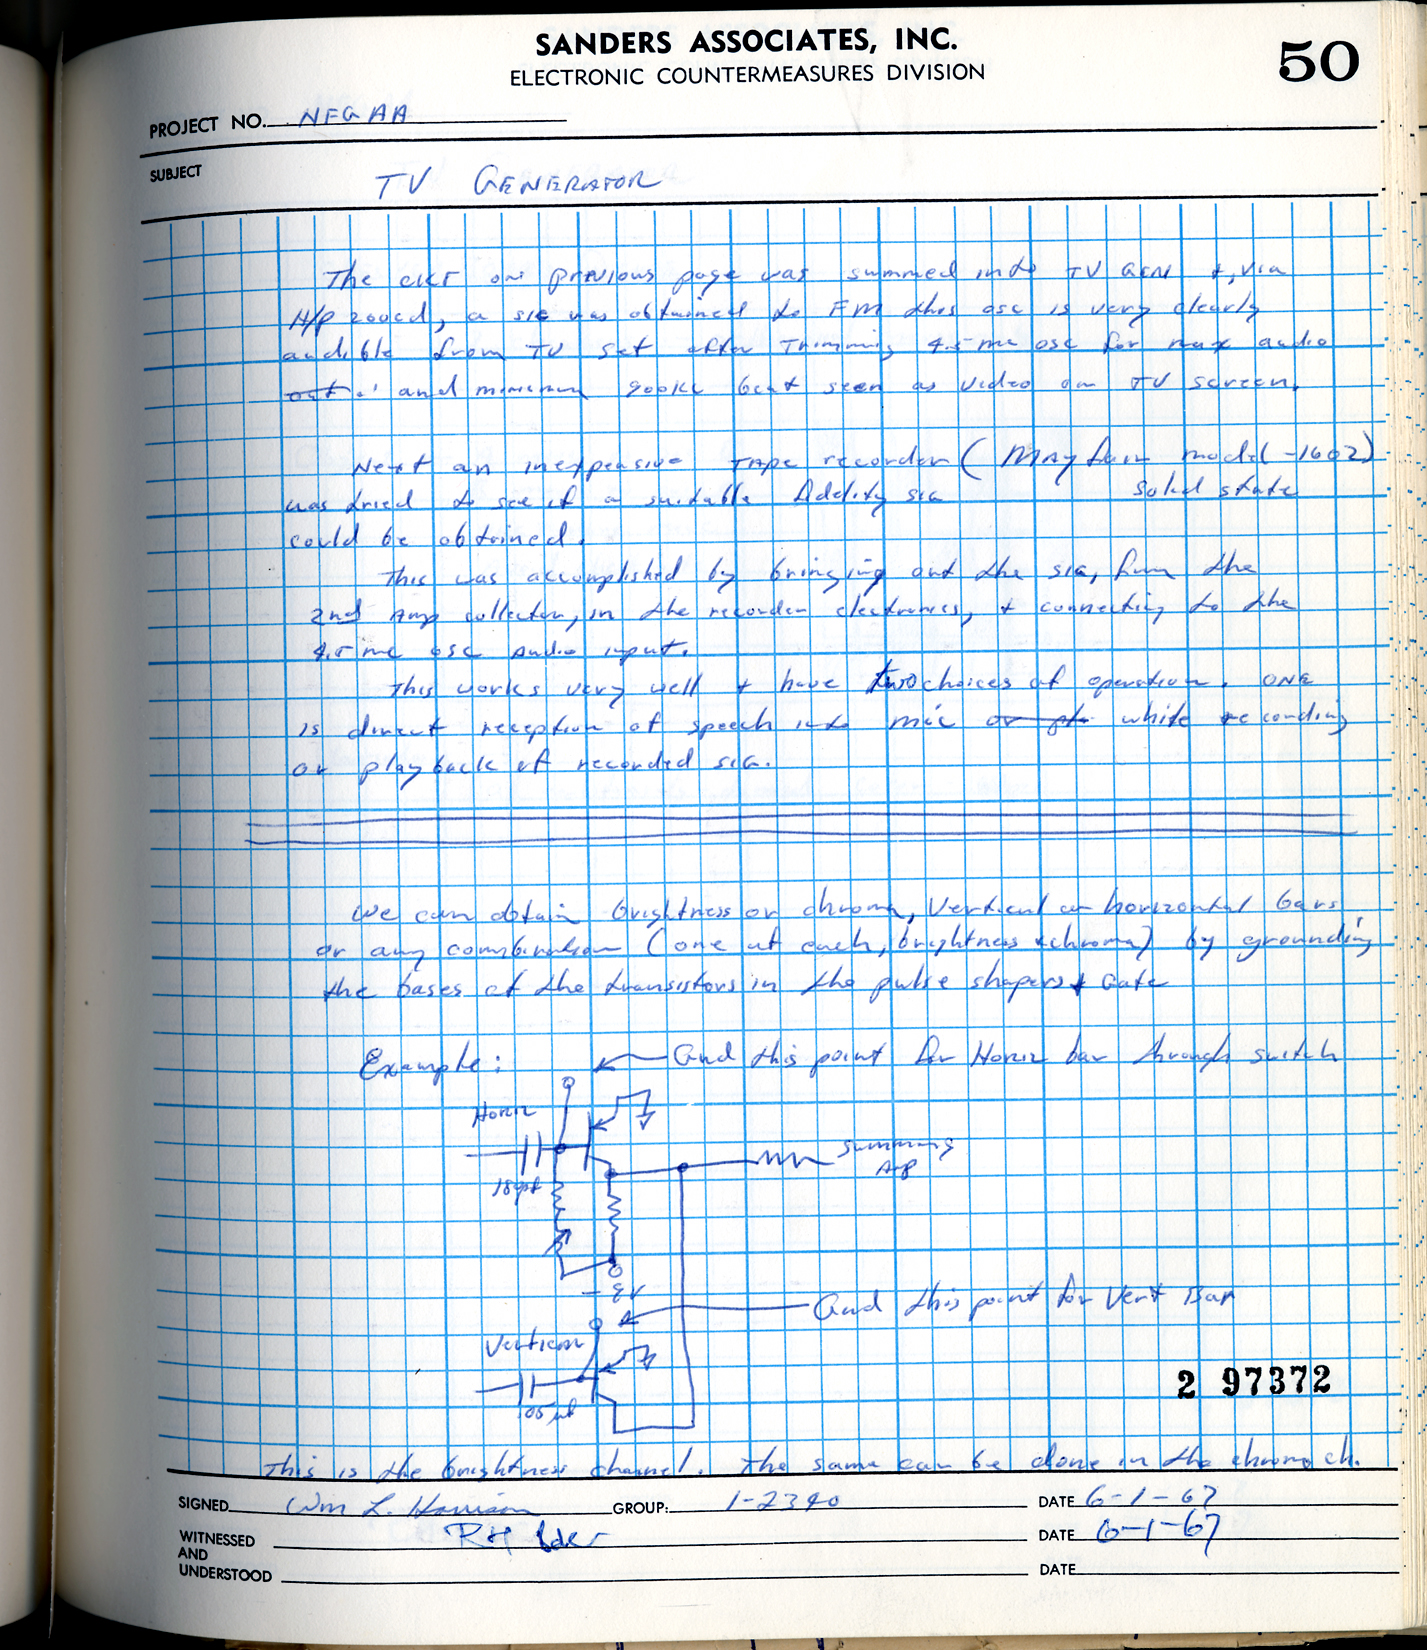 SANDERS ASSOCIATES, INC.
ELECTRONIC COUNTERMEASURES DIVISION
50
PROJECT NO. NEGAA
SUBJECT
TV GENERATOR
The ckt on previous page was summed into TV Gen +, via
H/P 200cd, a sig was obtained to FM this osc is very clearly
audible from TV set after Trimming 4.5 mc osc for max audio
out. and minimum 900KC beat seen as video on TV screen.
Next an inexpensive TAPe recorder (Mayfair model -1602)
solid state
was tried to see if a suitable fidelity sig
could be obtained.
This was accomplished by bringing out the sig, from the
2nd Amp collector, in the recorder electronics, + connecting to the
4.5 mc osc audio input.
This works very well + have two choices of operation. ONE
is direct reception of speech into mic or while recording
or playback of recorded sig.
We can obtain brightness or chroma, vertical or horizontal bars
or any combination (one of each, brightness + chroma) by grounding
the bases of the transistors in the pulse shapers + Gate
Example:
Gnd this point for Horiz bar through switch
Horiz
Summing
Amp
18pf
-8V
Gnd this point for Vert Bar
Vertical
.05 µf
2 97372
This is the brightness channel. The same can be done in the chroma ch.
SIGNED Wm L. Harrison GROUP: 1-2340 DATE 6-1-67
WITNESSED
AND
UNDERSTOOD
DATE 6-1-67
DATE